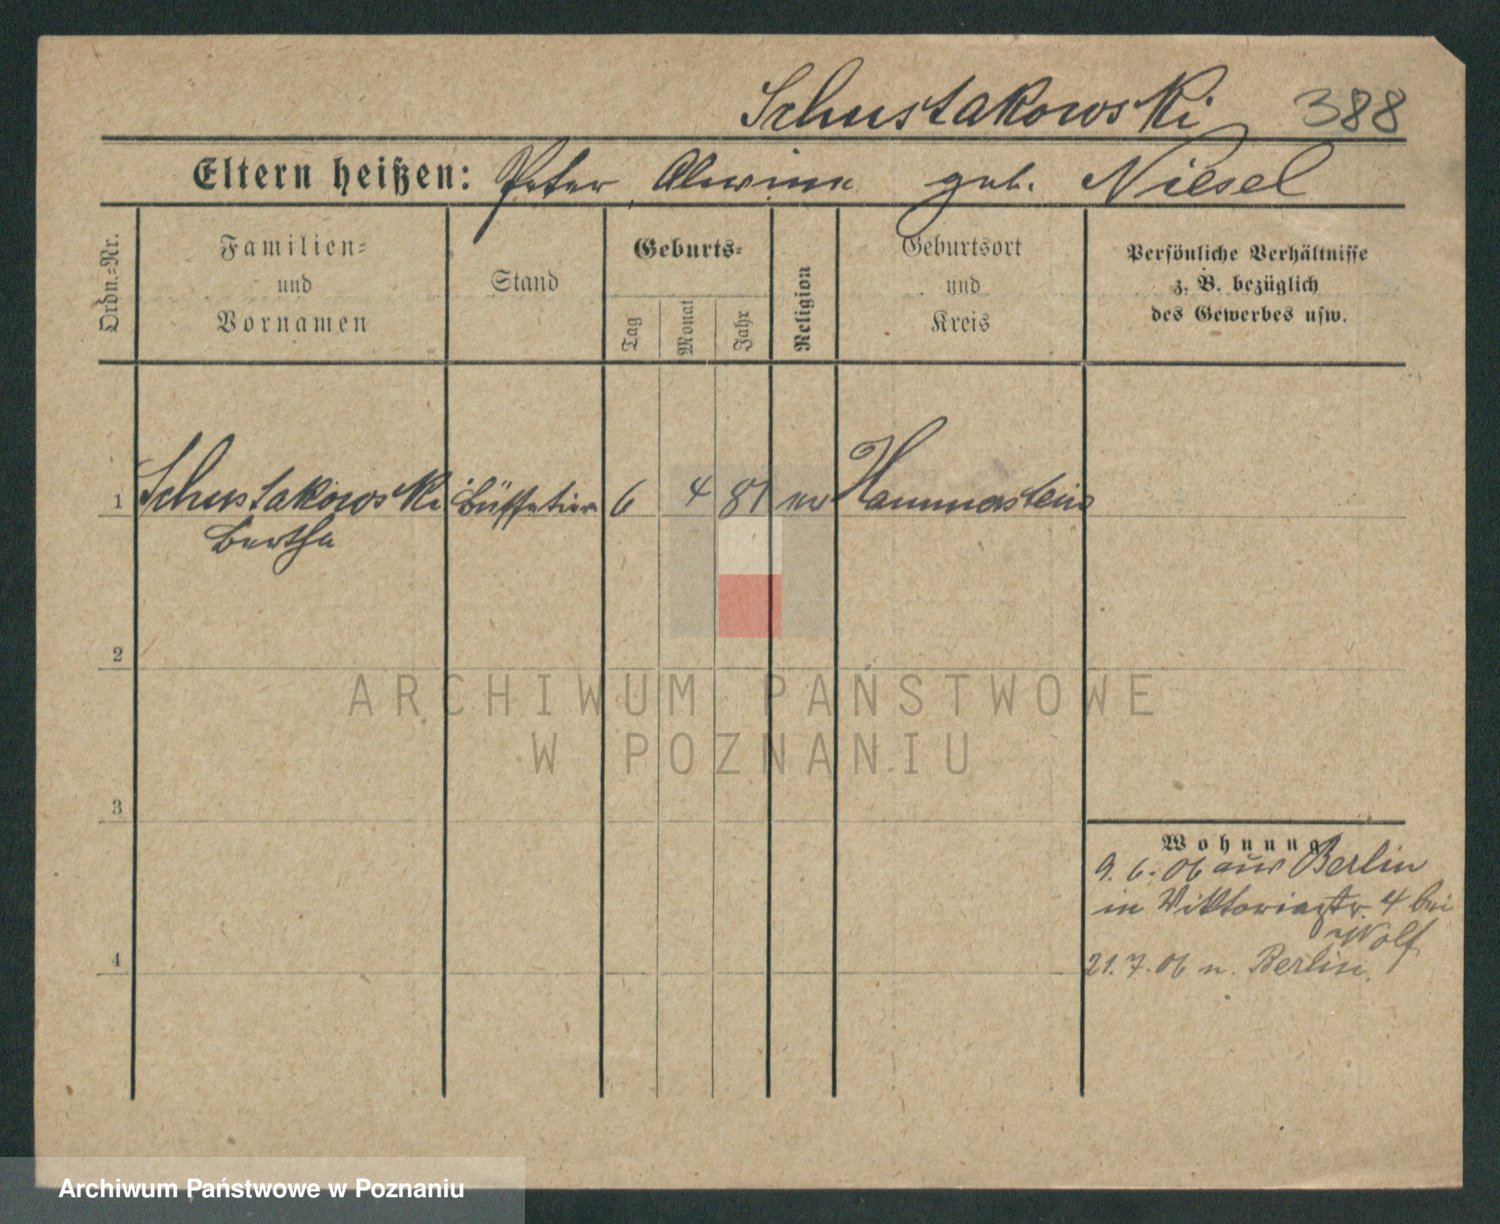 Schustakowski 388
Eltern heißen: Peter, Alwine geb. Niesel
Ordn.=Nr.
Familien=
und
Vornamen
Stand
Geburts=
Tag
Monat
Jahr
Religion
Geburtsort
und
Kreis
Persönliche Verhältnisse
z. B. bezüglich
des Gewerbes usw.
1 Schustakowski Büffetiere 6 4 81 ev Hammerstein
Bertha
2
ARCHIWUM PAŃSTWOWE
W POZNANIU
3
Wohnung
9. 6. 06 aus Berlin
in Viktoriastr. 4 bei
Wolf
4
21. 7. 06 n. Berlin.
Archiwum Państwowe w Poznaniu